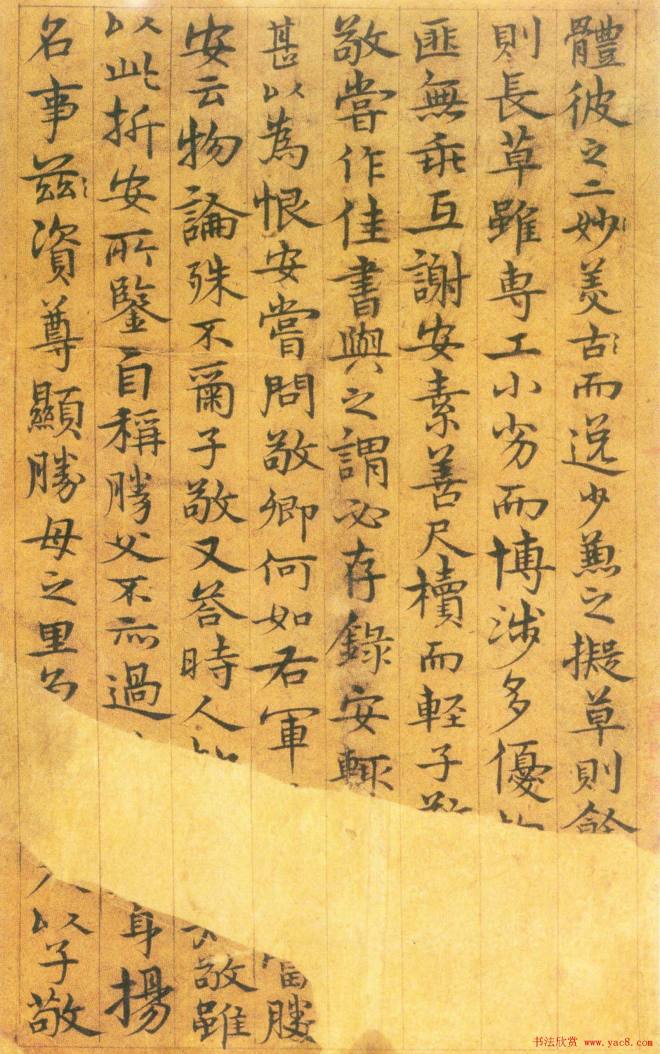 體彼之二妙羙古而逸少兼之擬草則
則長草雖専工小劣而博涉多優
匪無乖互謝安素善尺櫝而軽子敬
敬嘗作佳書與之謂必存錄安輒
甚以為恨安嘗問敬卿何如右軍當勝
安云物論殊不爾子敬又荅時人敬雖
以此折安所鑒自稱勝父不亦過身揚
名事茲資尊顯勝母之里以子敬
书法欣赏 www.yac8.com